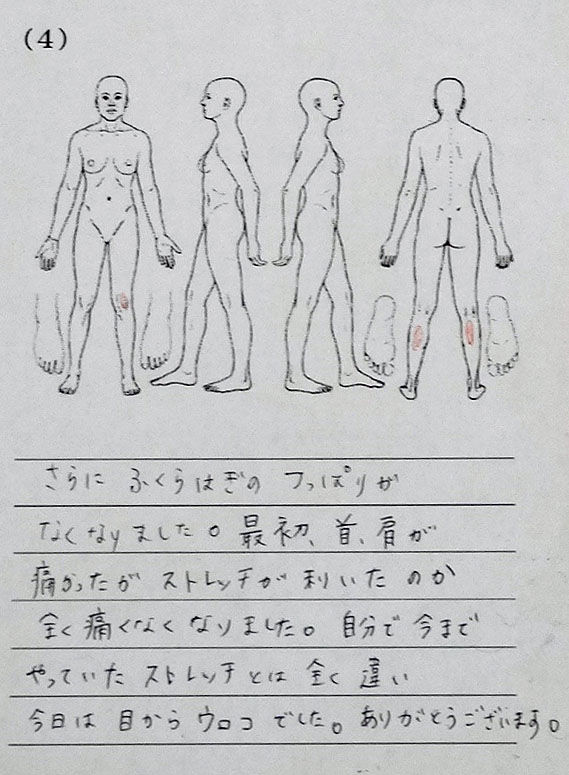 (4)
さらに ふくらはぎの つっぱりが
なくなりました。最初、首、肩が
痛かったが ストレッチが 利いたのか
全く痛くなくなりました。自分で今まで
やっていた ストレッチとは 全く違い
今日は 目から ウロコ でした。ありがとうございます。